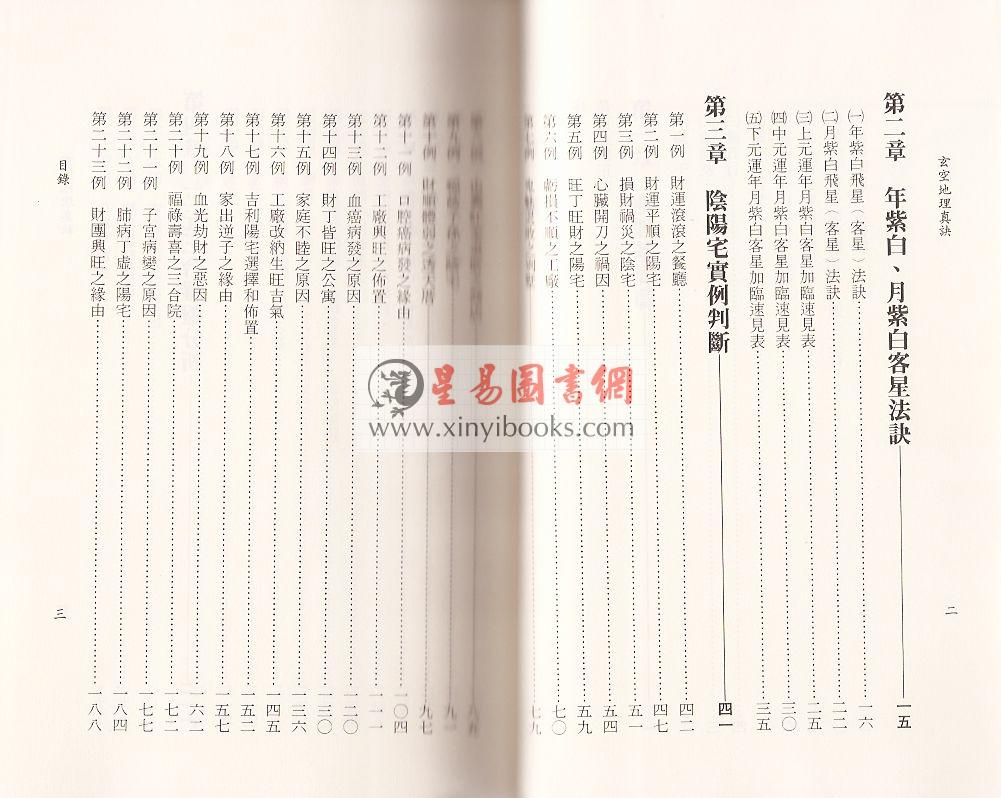 玄空地理真訣
第二章 年紫白、月紫白客星法訣 一五
㈠年紫白飛星(客星)法訣 一六
㈡月紫白飛星(客星)法訣 二二
㈢上元運年月紫白客星加臨速見表 二五
㈣中元運年月紫白客星加臨速見表 三〇
㈤下元運年月紫白客星加臨速見表 三五
第三章 陰陽宅實例判斷 四一
第一例 財運滾滾之餐廳 四二
第二例 財運平順之陽宅 四七
第三例 損財禍災之陰宅 五一
第四例 心臟開刀之禍因 五四
第五例 旺丁旺財之陽宅 五九
第六例 虧損不順之工廠 七〇
第七例 七九
二
第十例 財順體弱之透天厝 九七
第十一例 口腔癌病發之緣由 一〇四
第十二例 工廠興旺之佈置 一一一
第十三例 血癌病發之原因 一二〇
第十四例 財丁皆旺之公寓 一三〇
第十五例 家庭不睦之原因 一三六
第十六例 工廠改納生旺吉氣 一四五
第十七例 吉利陽宅選擇和佈置 一五二
第十八例 家出逆子之緣由 一五七
第十九例 血光劫財之惡因 一六二
第二十例 福祿壽喜之三合院 一七二
第二十一例 子宮病變之原因 一七七
第二十二例 肺病丁虛之陽宅 一八四
第二十三例 財團興旺之緣由 一八八
目錄
三
星易圖書網
www.xinyibooks.com